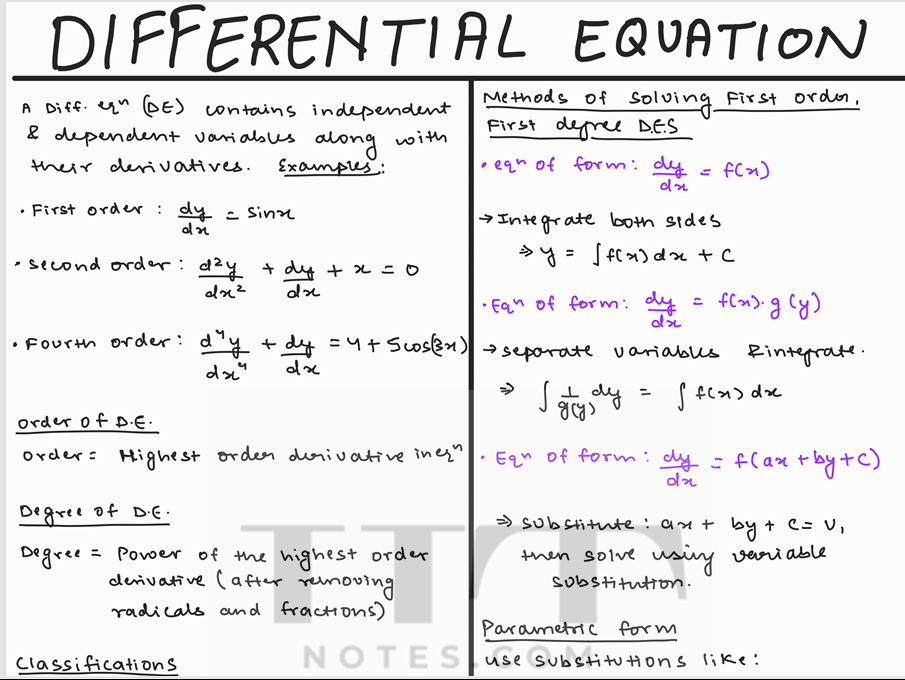 DIFFERENTIAL EQUATION
A Diff. eqⁿ (DE) contains independent
& dependent variables along with
their derivatives. Examples:
• First order : dy/dx = sinx
• second order : d²y/dx² + dy/dx + x = 0
• Fourth order : d⁴y/dx⁴ + dy/dx = 4 + 5cos(3x)
order of D.E.
order = Highest order derivative in eqⁿ
Degree of D.E.
Degree = Power of the highest order
derivative (after removing
radicals and fractions)
Classifications
Methods of solving First order,
First degree DES
• eqⁿ of form : dy/dx = f(x)
→ Integrate both sides
⇒ y = ∫f(x) dx + C
• Eqⁿ of form : dy/dx = f(x)·g(y)
→ separate variables & integrate.
⇒ ∫ 1/g(y) dy = ∫ f(x) dx
• Eqⁿ of form : dy/dx = f(ax + by + c)
⇒ substitute : ax + by + c = v,
then solve using variable
substitution.
Parametric form
use substitutions like :
IIT
NOTES.COM